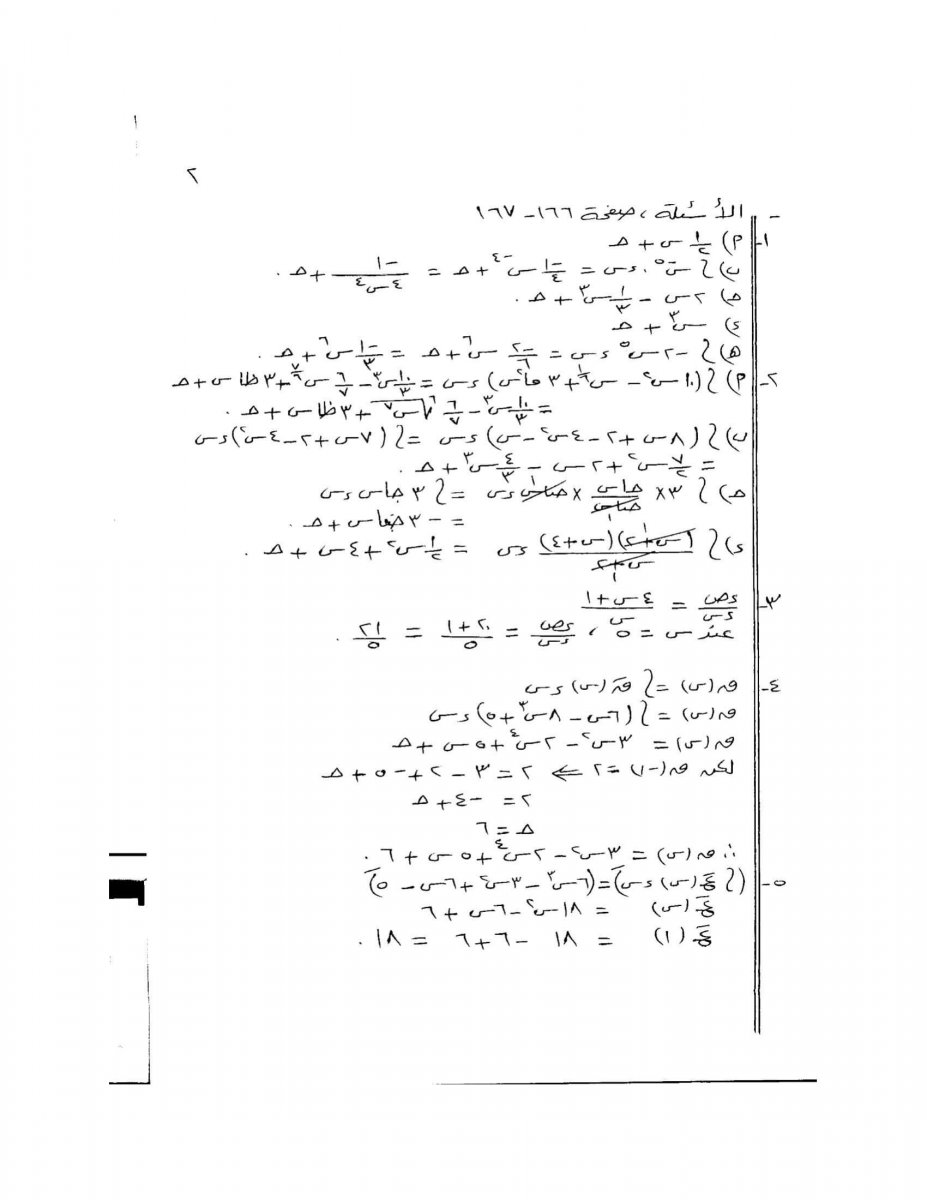 ٢
- الأسئلة، صفحة ١٦٦ - ١٦٧
١- أ) ١/٢ س + جـ
ب) ∫ س^-٥ . ءس = -١/٤ س^-٤ + جـ = -١/(٤س^٤) + جـ .
جـ) ٢س - ١/٣ س^٣ + جـ .
ء) س^٣ + جـ
هـ) ∫ -٢س^٥ ءس = -٢/٦ س^٦ + جـ = -١/٣ س^٦ + جـ .
٢- أ) ∫ (١٠س^٢ - س^(١/٦) + ٣ قا^٢س) ءس = ١٠/٣ س^٣ - ٦/٧ س^(٧/٦) + ٣ظاس + جـ
= ١٠/٣ س^٣ - ٦/٧ ⁶√(س^٧) + ٣ظاس + جـ .
ب) ∫ (٨س + ٢ - ٤س^٢ - س) ءس = ∫ (٧س + ٢ - ٤س^٢) ءس
= ٧/٢ س^٢ + ٢س - ٤/٣ س^٣ + جـ .
جـ) ∫ ٣ × جاس/جتاس × جتاس ءس = ∫ ٣ جاس ءس
= -٣ جتاس + جـ .
ء) ∫ (س+٢)(س+٤)/(س+٢) ءس = ١/٢ س^٢ + ٤س + جـ .
٣- ءص/ءس = (٤س + ١)/س
عند س = ٥ ، ءص/ءس = (٢٠ + ١)/٥ = ٢١/٥ .
٤- ق(س) = ∫ قَ(س) ءس
ق(س) = ∫ (٦س - ٨س^٣ + ٥) ءس
ق(س) = ٣س^٢ - ٢س^٤ + ٥س + جـ
لكن ق(-١) = ٢ ⇐ ٢ = ٣ - ٢ + -٥ + جـ
٢ = -٤ + جـ
جـ = ٦
∴ ق(س) = ٣س^٢ - ٢س^٤ + ٥س + ٦ .
٥- (∫ (س) ءس)َ = (٦س^٣ - ٣س^٢ + ٦س - ٥)َ
(س) = ١٨س^٢ - ٦س + ٦
(١) = ١٨ - ٦ + ٦ = ١٨ .